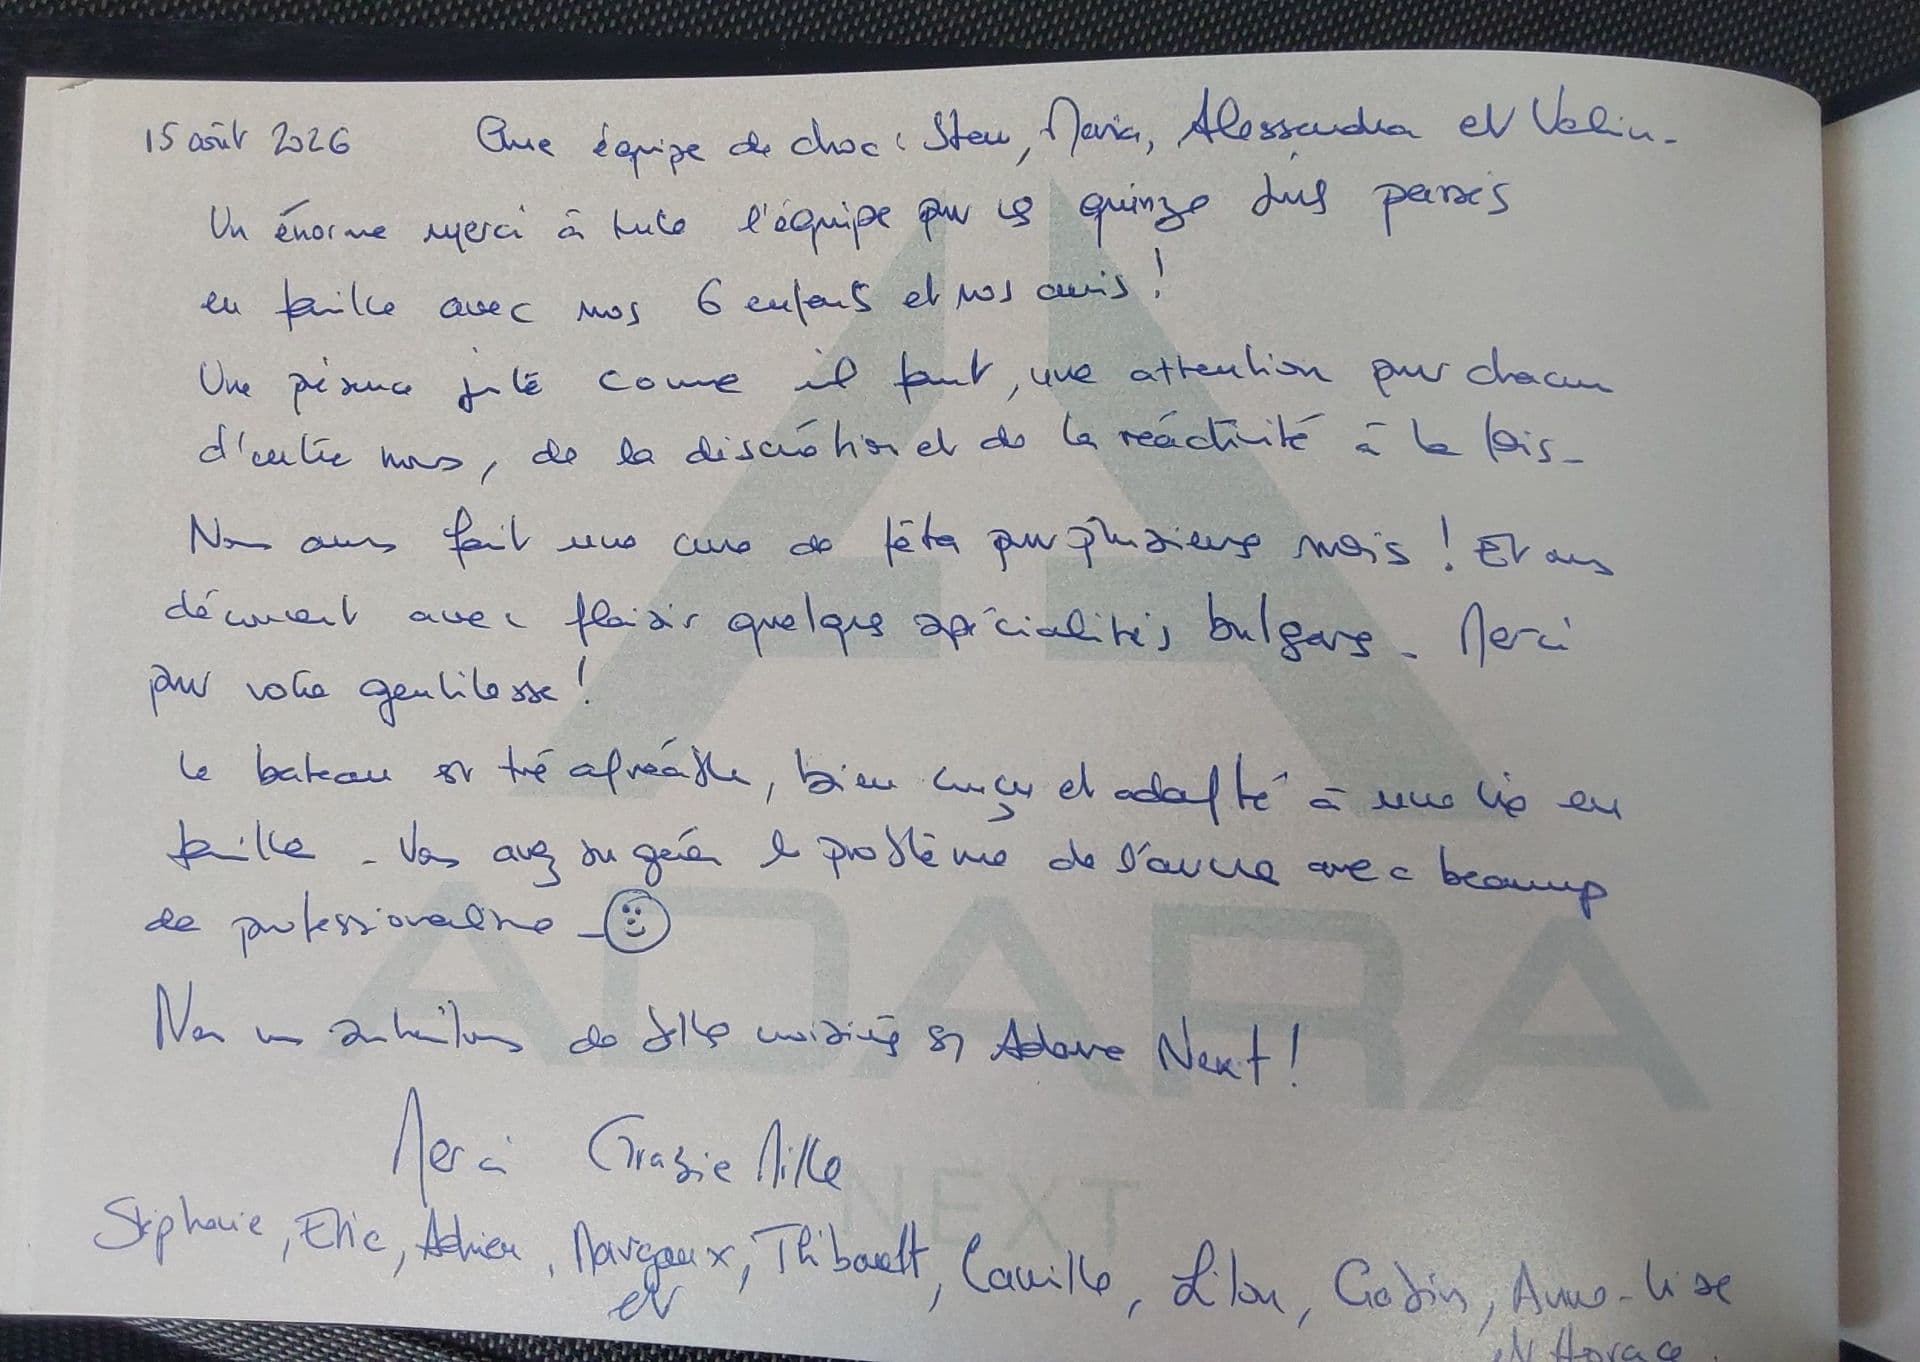 15 août 2026 Une équipe de choc : Steu, Maria, Alessandra et Valin.
Un énorme merci à toute l'équipe pour ces quinze jours passés
en famille avec nos 6 enfants et nos amis !
Une présence juste comme il faut, une attention pour chacun
d'entre nous, de la discrétion et de la réactivité à la fois.
Nous avons fait une cure de féta pour plusieurs mois ! Et avons
découvert avec plaisir quelques spécialités bulgares. Merci
pour votre gentillesse !
Le bateau est très agréable, bien conçu et adapté à une vie en
famille. Vous avez su gérer le problème de l'ancre avec beaucoup
de professionnalisme.
Nous vous souhaitons de belles croisières sur Adara Next !
Merci Grazie Mille
Stéphanie, Eric, Adrien, Margaux, Thibault, Camille, Lilou, Anne-Lise
et
et Horace.
ADARA
NEXT